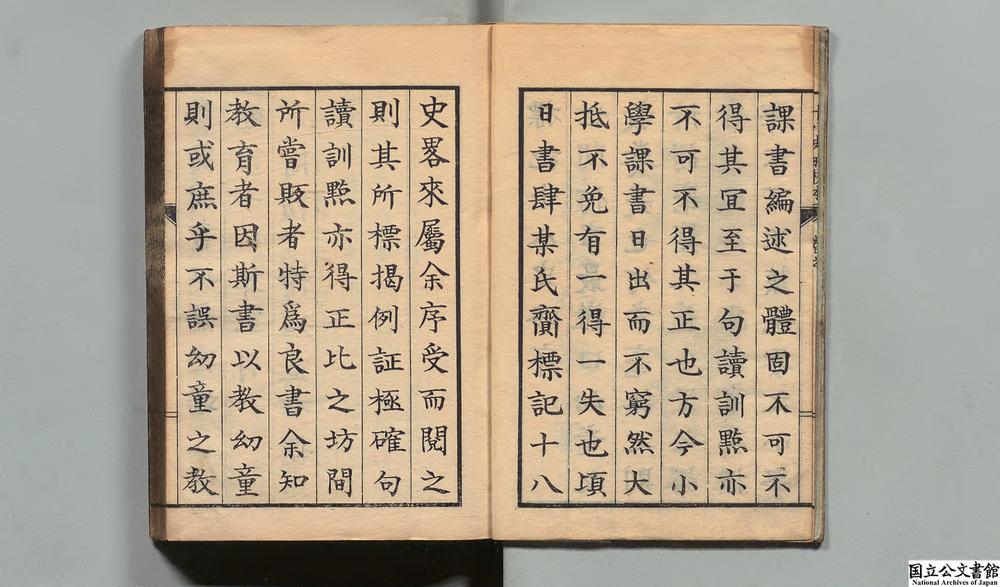 課書編述之體固不可不
得其冝至于句讀訓㸃亦
不可不得其正也方今小
學課書日出而不窮然大
抵不免有一得一失也頃
日書肆某氏齎標記十八
史畧來屬余序受而閱之
則其所標揭例証極確句
讀訓㸃亦得正比之坊間
所嘗販者特爲良書余知
教育者因斯書以教幼童
則或庶乎不誤幼童之教
国立公文書館
National Archives of Japan